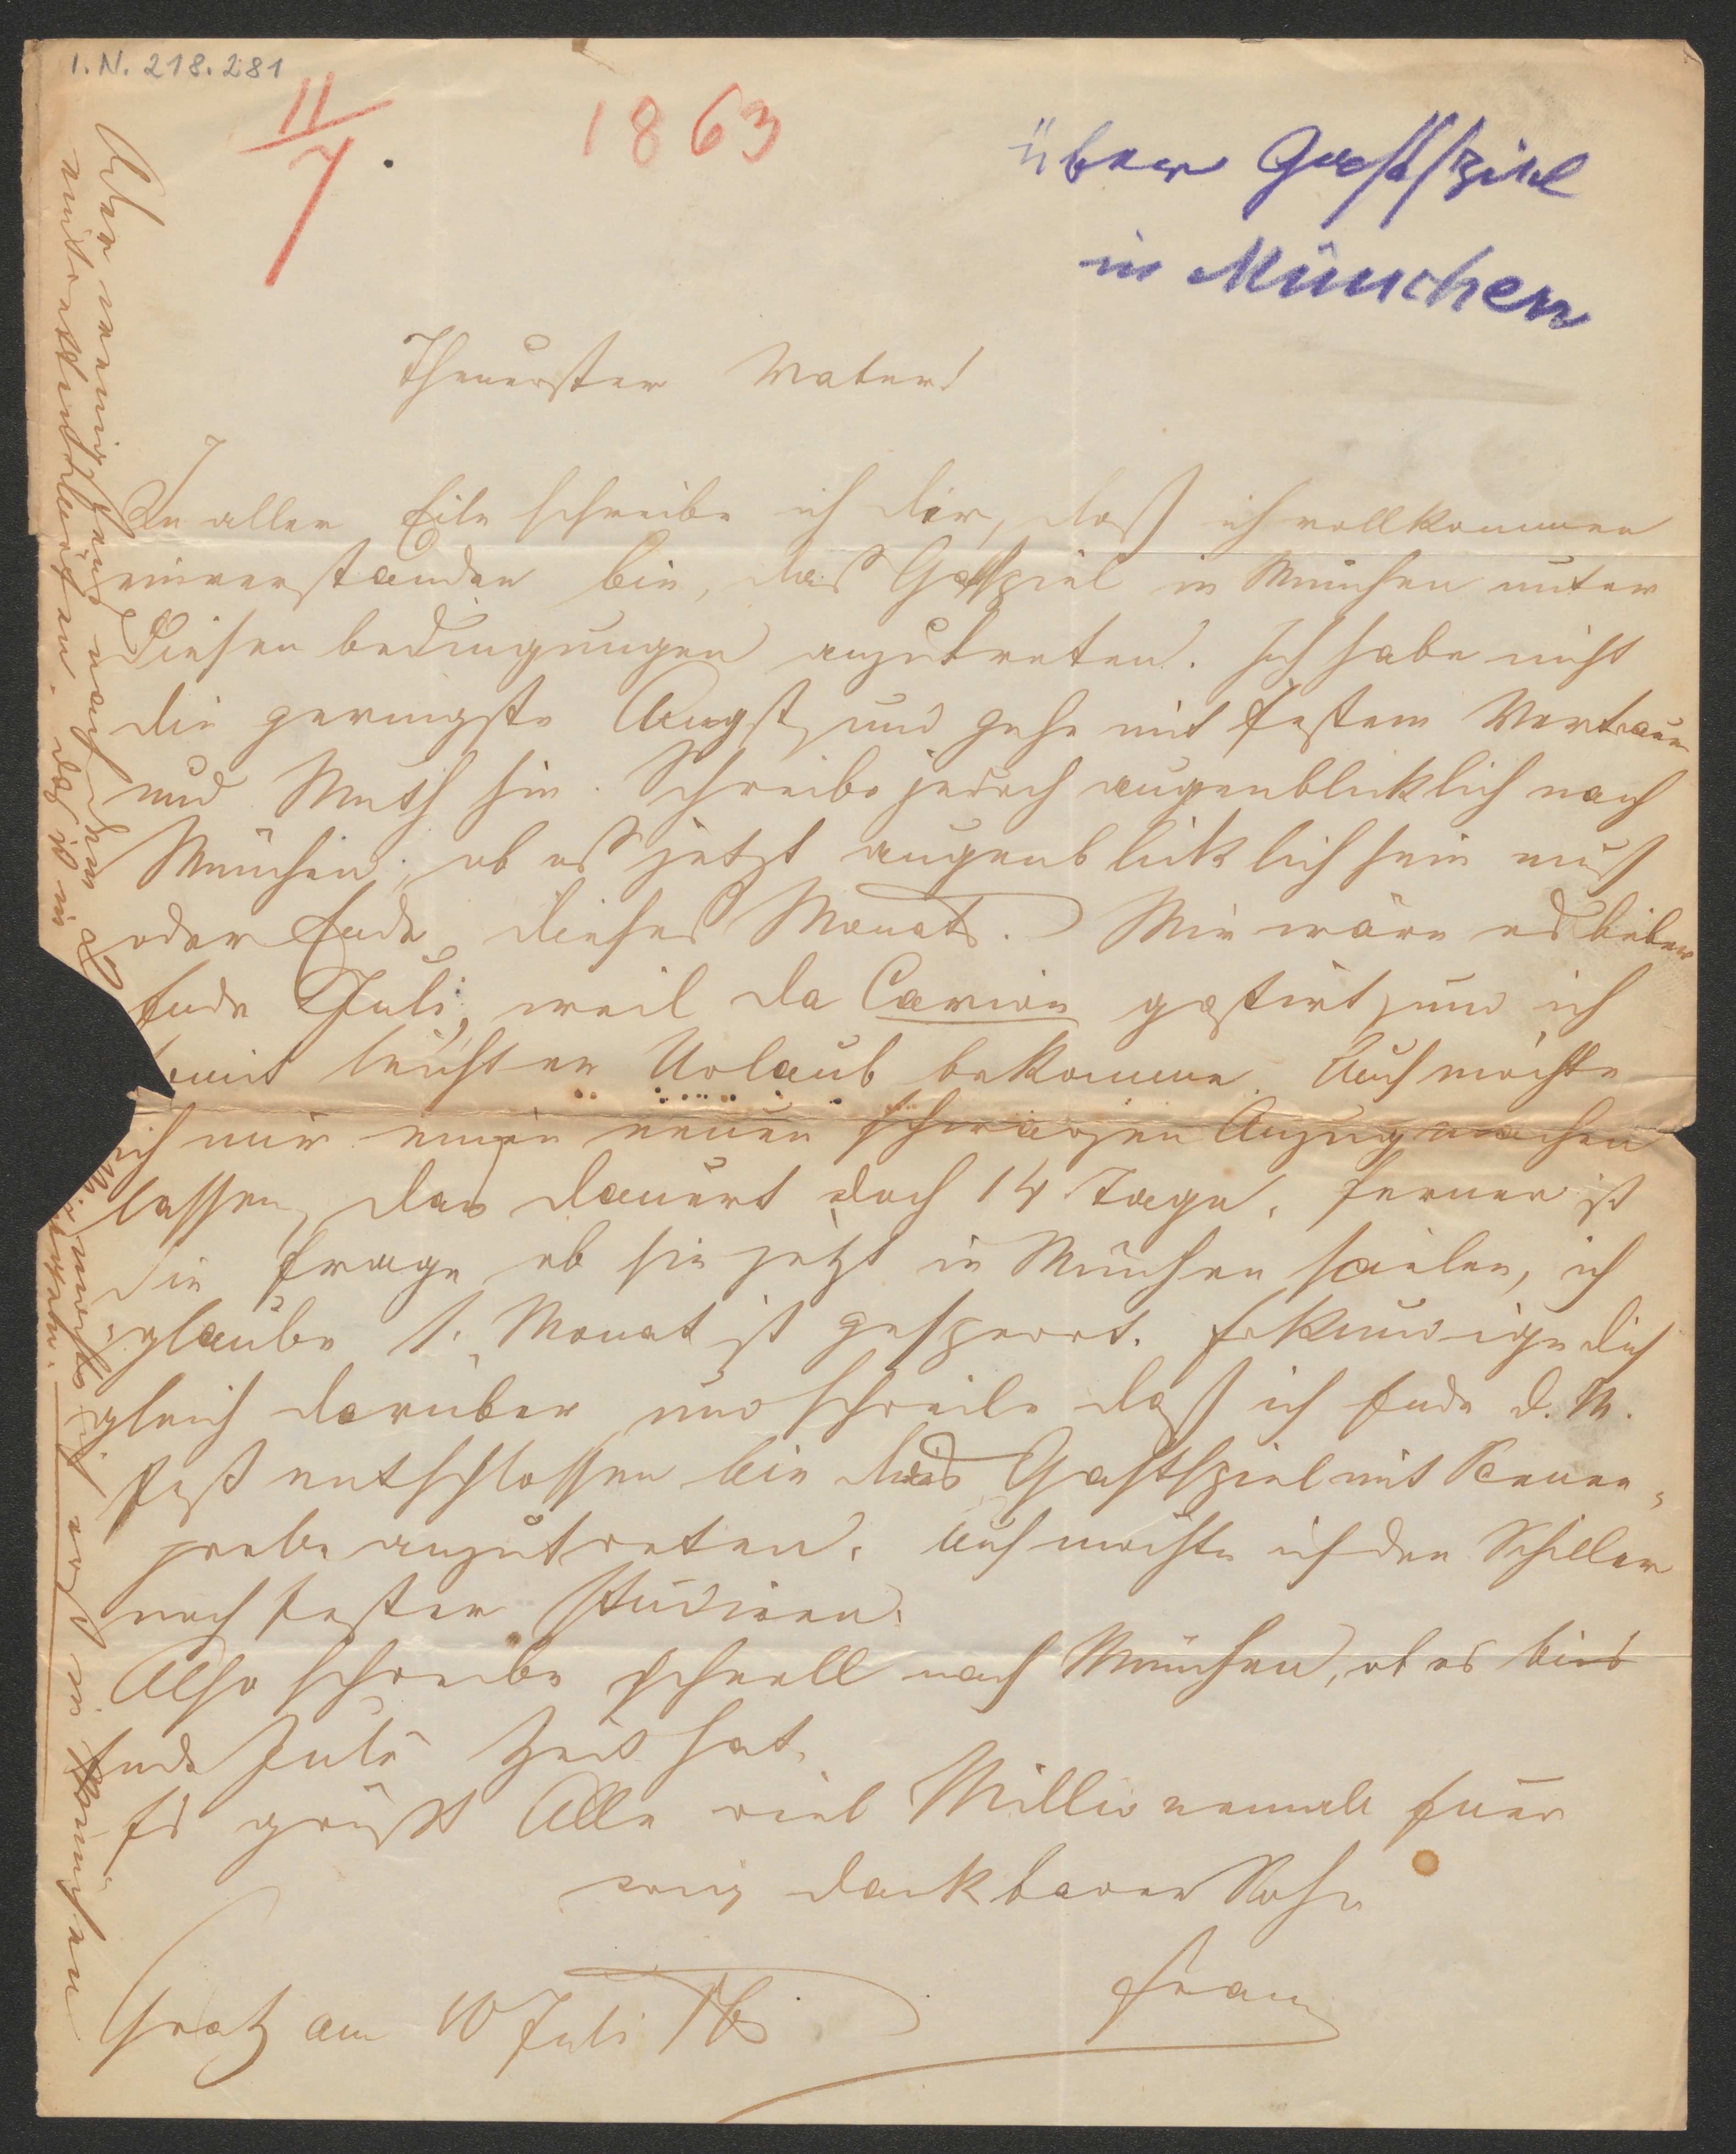 I.N. 218.281
11/7. 1863
über Gastspiel
in München
Theuerster Vater!
In aller Eile schreibe ich dir, daß ich vollkommen
einverstanden bin, das Gastspiel in München unter
diesen bedingungen anzutreten. Ich habe nicht
die geringste Angst, und gehe mit festem Vertrauen
und Muth hin. Schreibe jedoch augenblicklich nach
München, ob es jetzt augenblicklich sein muß
oder Ende dieses Monats. Mir wäre es lieber
Ende Juli, weil da Carion gastirt, und ich
leichter Urlaub bekomme. Auch möchte
ich mir einen neuen schwarzen Anzug machen
lassen, das dauert doch 14 Tage, ferner ist
die Frage ob sie jetzt in München spielen, ich
glaube 1. Monat ist gesperrt. Erkundige dich
gleich darüber, und schreibe daß ich Ende d. M.
fest entschlossen bin das Gastspiel mit
probe anzutreten. Auch möchte ich den Schiller
noch fester studieren.
Also schreibe schnell nach München, ob es bis
Ende Juli Zeit hat.
Es grüßt Alle viel Millionenmale Euer
ewig dankbarer Sohn
Franz
Gratz am 10 Juli
Aber wenig Zeit nach dem
möchte ich erst in München
das ist mir